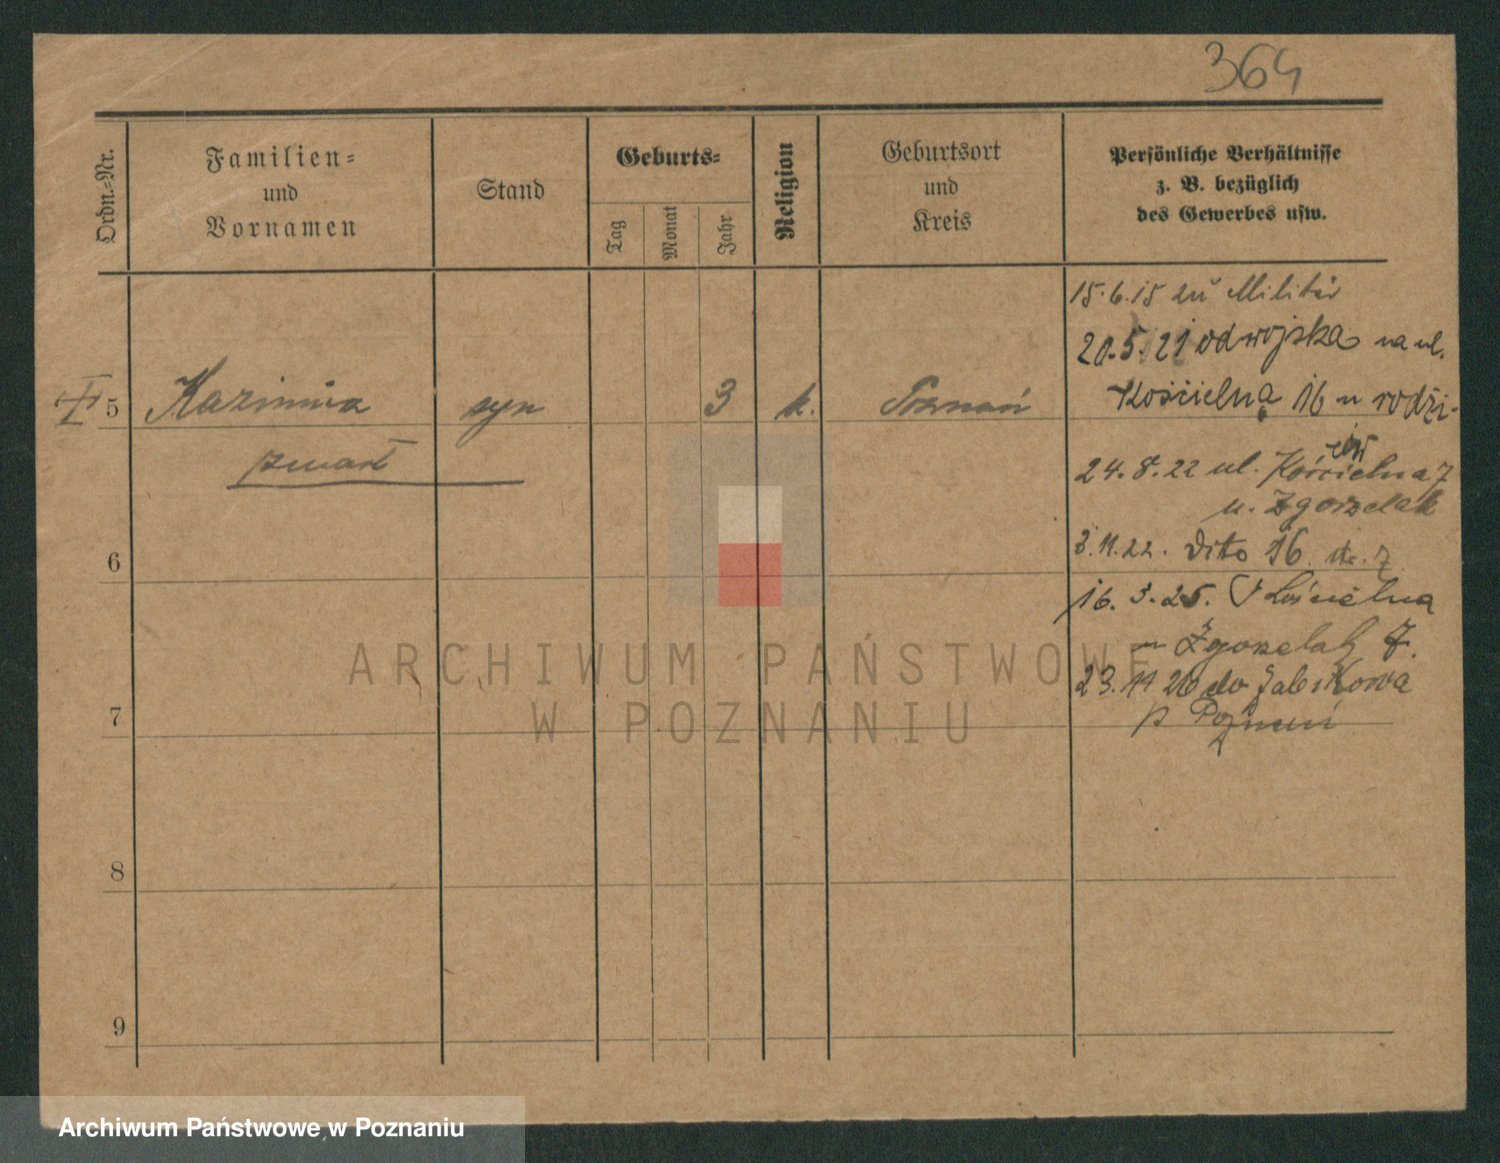 364
Ordn.-Nr.
Familien-
und
Vornamen
Stand
Geburts-
Tag
Monat
Jahr
Religion
Geburtsort
und
Kreis
Persönliche Verhältnisse
z. B. bezüglich
des Gewerbes usw.
15.6.15 zu Militär
20.5.21 od wojska na ul.
5 Kazimira syn 3 k. Poznań Kościelną 16 u rodzi-
ców
zmarł
24.8.22 ul. Kościelna 7
u. Zgorzelak
6
3.11.22. dito 16
16.3.25. Kościelna
u Zgorzelak 7.
23.11 26 do
p Poznań
7
8
9
ARCHIWUM PAŃSTWOWE
W POZNANIU
Archiwum Państwowe w Poznaniu